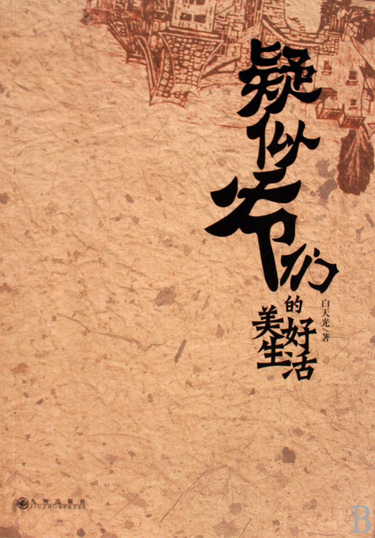 疑似爷们
的美好生活
白天光/著
九州出版社
JIUZHOUPRESS
B